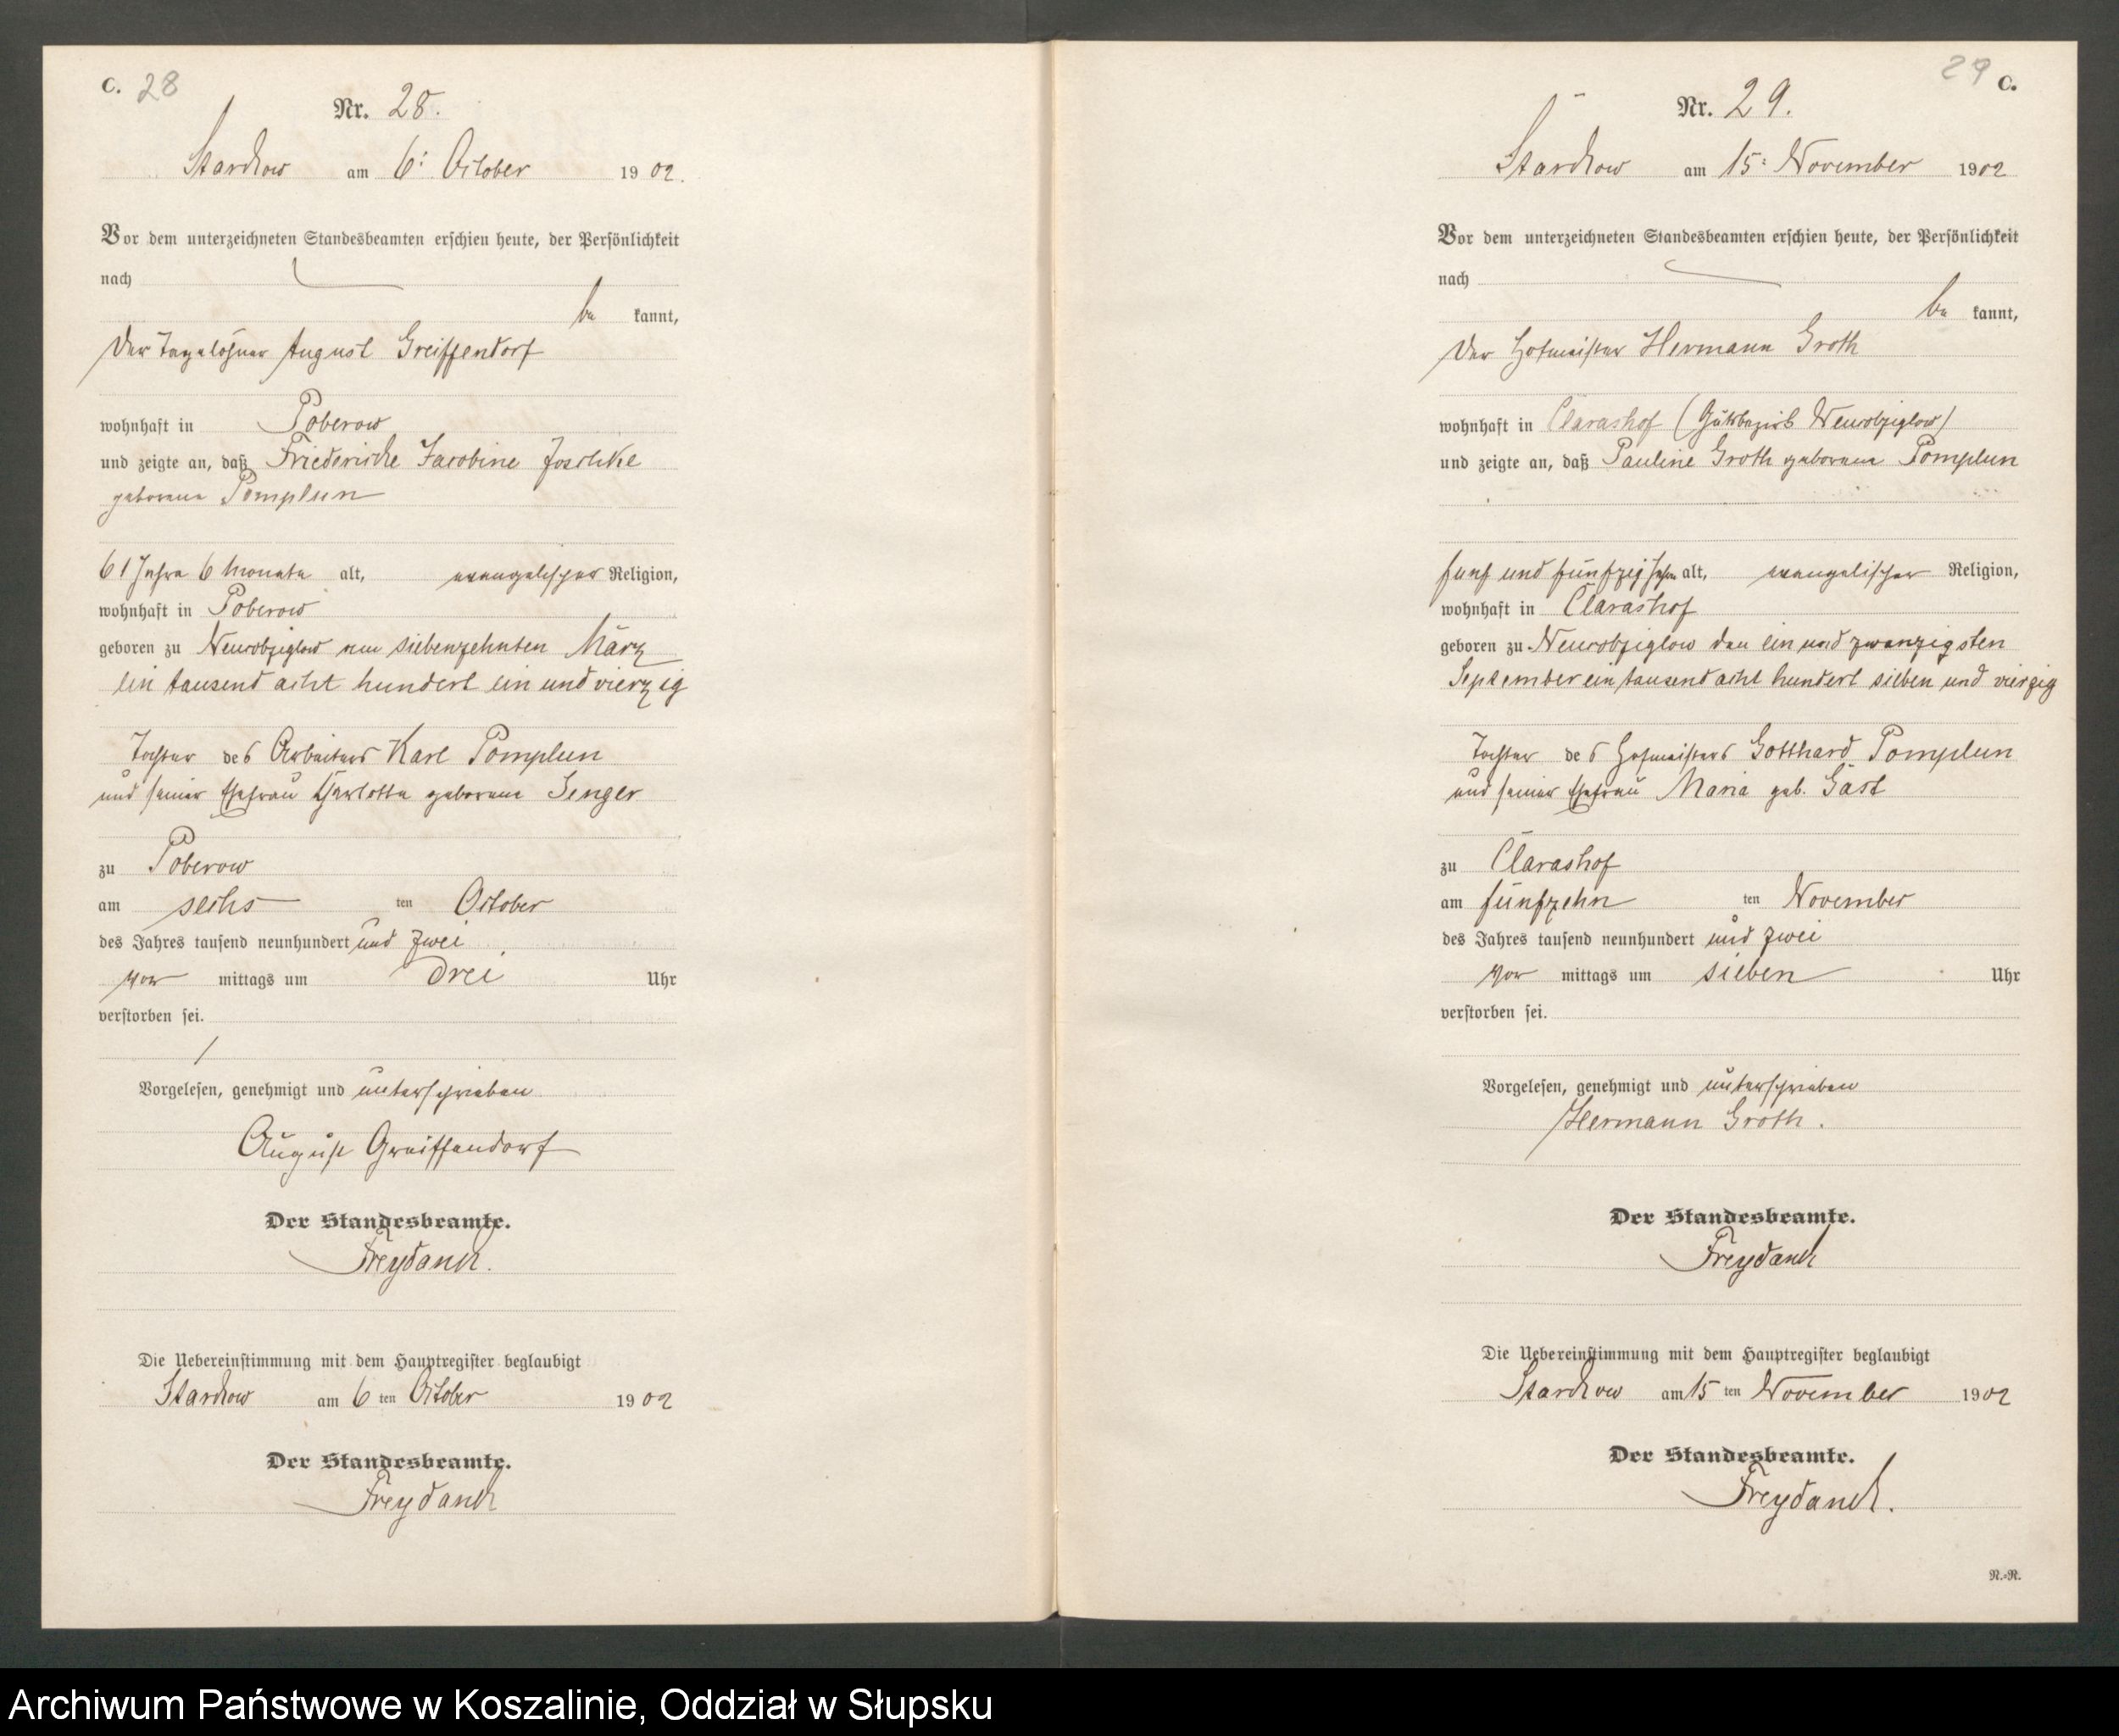 C. 28
Nr. 28.
Starckow am 6: October 1902.
Vor dem unterzeichneten Standesbeamten erschien heute, der Persönlichkeit
nach
be kannt,
der Tagelöhner August Greiffendorf
wohnhaft in Poberow
und zeigte an, daß Friedericke Jacobine Joschke
geborene Pomplun
61 Jahre 6 Monate alt, evangelischer Religion,
wohnhaft in Poberow
geboren zu Neuwobziglow am siebenzehnten März
ein tausend acht hundert ein und vierzig
Tochter des Arbeiters Karl Pomplun
und seiner Ehefrau Charlotte geborene Senger
zu Poberow
am sechs ten October
des Jahres tausend neunhundert und zwei
vor mittags um drei Uhr
verstorben sei.
Vorgelesen, genehmigt und unterschrieben
August Greiffendorf
Der Standesbeamte.
Freydanck.
Die Uebereinstimmung mit dem Hauptregister beglaubigt
Starckow am 6 ten October 1902
Der Standesbeamte.
Freydanck
29 C.
Nr. 29.
Starckow am 15: November 1902
Vor dem unterzeichneten Standesbeamten erschien heute, der Persönlichkeit
nach
be kannt,
der Hofmeister Hermann Groth
wohnhaft in Clarashof (Gutsbezirk Neuwobziglow)
und zeigte an, daß Pauline Groth geborene Pomplun
fünf und fünfzig Jahre alt, evangelischer Religion,
wohnhaft in Clarashof
geboren zu Neuwobziglow den ein und zwanzigsten
September ein tausend acht hundert sieben und vierzig
Tochter des Hofmeisters Gotthard Pomplun
und seiner Ehefrau Maria geb. Gast
zu Clarashof
am fünfzehn ten November
des Jahres tausend neunhundert und zwei
vor mittags um sieben Uhr
verstorben sei.
Vorgelesen, genehmigt und unterschrieben
Hermann Groth.
Der Standesbeamte.
Freydanck
Die Uebereinstimmung mit dem Hauptregister beglaubigt
Starckow am 15 ten November 1902
Der Standesbeamte.
Freydanck.
N.=N.
Archiwum Państwowe w Koszalinie, Oddział w Słupsku